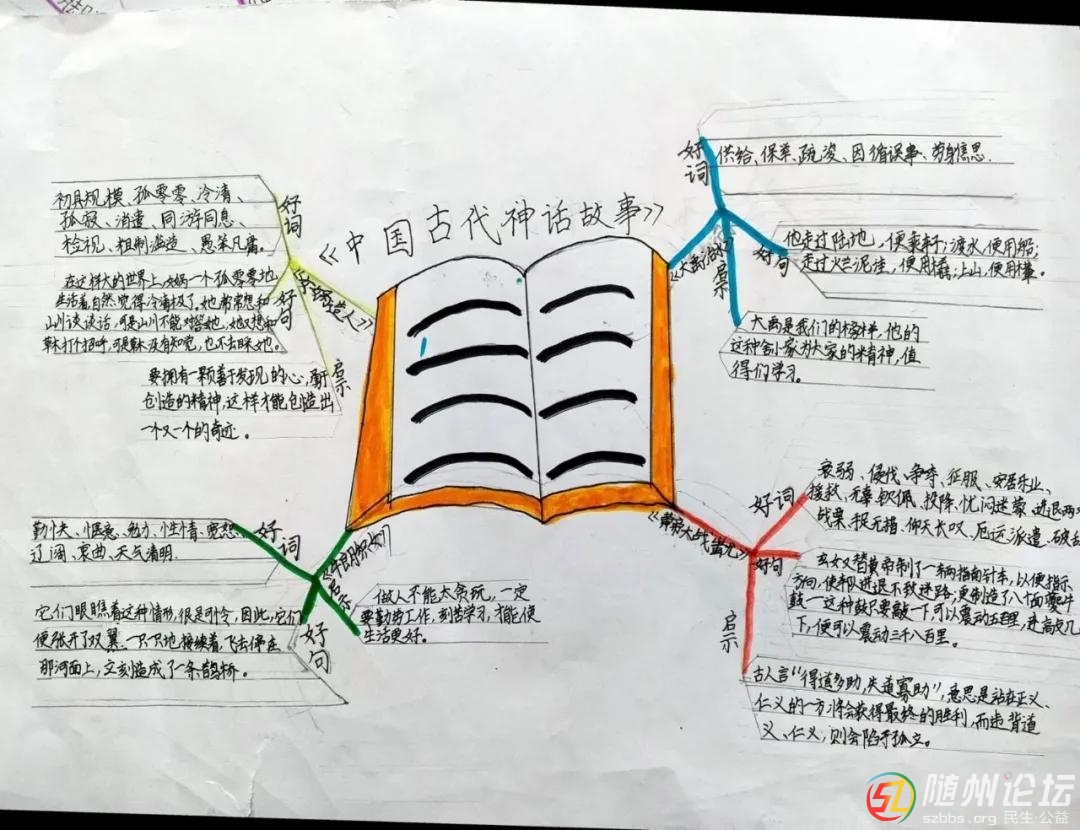 《中国古代神话故事》
《女娲造人》
好词
初具规模、孤零零、冷清、
孤寂、消遣、同游同息、
检视、粗制滥造、愚笨凡庸。
好句
在这样大的世界上,女娲一个孤零零地
生活着,自然觉得冷清极了。她常常想和
山川谈谈话,可是山川不能对答她,她又想和
草木打个招呼,可是草木没有知觉,也不去睬她。
启示
要拥有一颗善于发现的心,
创造的精神,这样才能创造出
一个又一个的奇迹。
《大禹治水》
好词
供给、保举、疏浚、因循误事、劳身焦思.
好句
他走过陆地,便乘车子;渡水,便用船;
走过烂泥洼,便用橇;上山,便用檋。
启示
大禹是我们的榜样,他的
这种舍小家为大家的精神,值
得们学习。
《牛郎织女》
好词
勤快、惬意、勉力、性情、宽恕、
辽阔、哀曲、天气清明.
好句
它们眼瞧着这种情形,很是可怜,因此,它们
便张开了双翼,一只只地接续着,飞去停在
那河面上,立刻造成了一条鹊桥。
启示
做人不能太贪玩,一定
要勤劳工作,刻苦学习,才能使
生活更好。
《黄帝大战蚩尤》
好词
衰弱、侵伐、争夺、征服、安居乐业、
援救、无辜、钦佩、投降、忧闷迷蒙、进退两
战果、仰天长叹、厄运、派遣、
好句
玄女又替黄帝制了一辆指南针车,以便指示
方向,使和进退不致迷路,更制造了八十面夔牛
鼓——这种鼓只要敲一下可以震动五百里,连敲几
下,便可以震动三千八百里。
启示
古人言“得道多助,失道寡助”,意思是站在正义、
仁义的一方将会获得最终的胜利,而违背道
义、仁义,则会陷于孤立。
随州论坛
szbbs.org 民生·公益